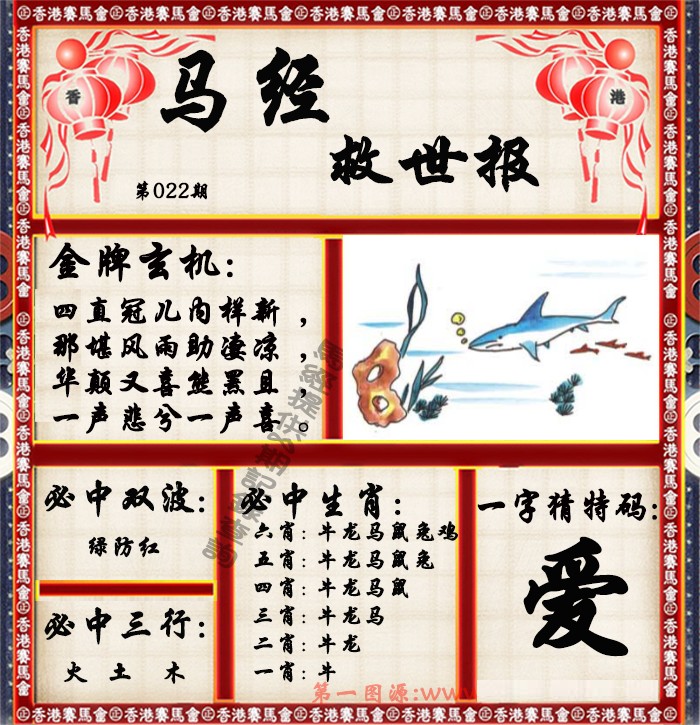 香港賽馬會
香
港
马经
救世报
第022期
金牌玄机:
四直冠儿内样新，
那堪风雨助凄凉，
华颠又喜熊罴且，
一声悲兮一声喜。
必中双波:
绿防红
必中三行:
火 土 木
必中生肖:
六肖: 牛龙马鼠兔鸡
五肖: 牛龙马鼠兔
四肖: 牛龙马鼠
三肖: 牛龙马
二肖: 牛龙
一肖: 牛
一字猜特码:
爱
第一图源:www